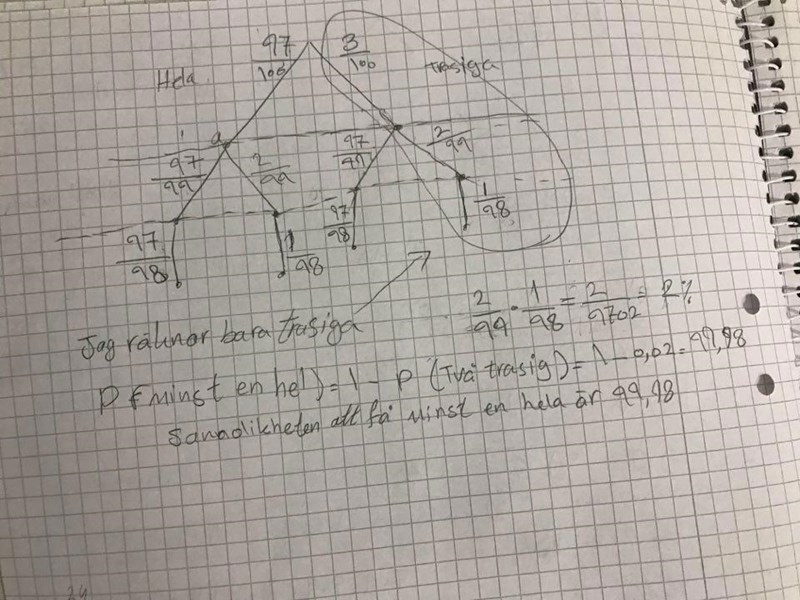 97/100 3/100
Hela trasiga
a
97/99 2/99 97/99 2/99
97/98 1/98 97/98 1/98
Jag räknar bara trasiga
2/99 · 1/98 = 2/9702 = 2%
P (minst en hel) = 1 - P (Två trasig) = 1 - 0,02 = 99,98
Sannolikheten att få minst en hela är 99,98